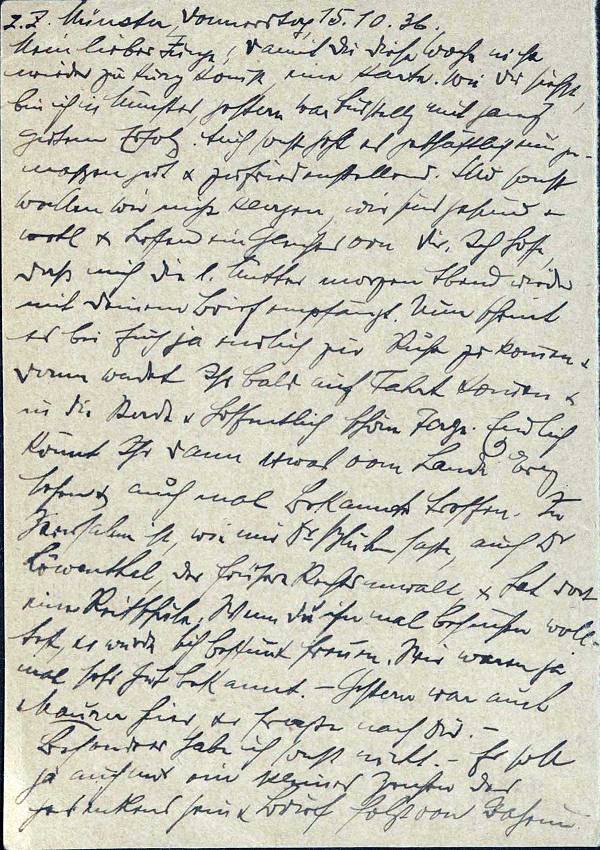 z.Z. Münster, Donnerstag 15.10.36.
Mein lieber Junge, damit Du diese Woche nicht
wieder zu kurz kommst, eine Karte. Wie Du siehst,
bin ich in Münster, gestern war Ausstellg mit ganz
gutem Erfolg. Auch sonst geht es geschäftlich einiger-
maßen gut & zufriedenstellend. Und sonst
wollen wir nicht klagen, wir sind gesund &
wohl & hoffen ein Gleiches von Dir. Ich hoffe,
daß mich die l. Mutter morgen Abend wieder
mit Deinem Brief empfängt. Nun scheint
es bei Euch ja endlich zur Ruhe zu kommen &
dann werdet Ihr bald auf Fahrt können &
in die Stadt & hoffentlich schöne Tage. Endlich
könnt Ihr dann etwas vom Lande Erez
sehen & auch mal Bekannte treffen. In
Jerusalem ist, wie mir Dr. sagte, auch Dr
Löwenthal, der frühere Rechtsanwalt, & hat dort
eine Reitschule. Wenn Du ihn mal besuchen woll-
test, es würde ihn bestimmt freuen. Wir waren ja
mal sehr gut bekannt. – Gestern war auch
hier, & fragte nach Dir. –
Besonderes habe ich sonst nicht. – Es soll
ja auch nur ein kleines Zeichen des
Gedenkens sein & Brief folgt von